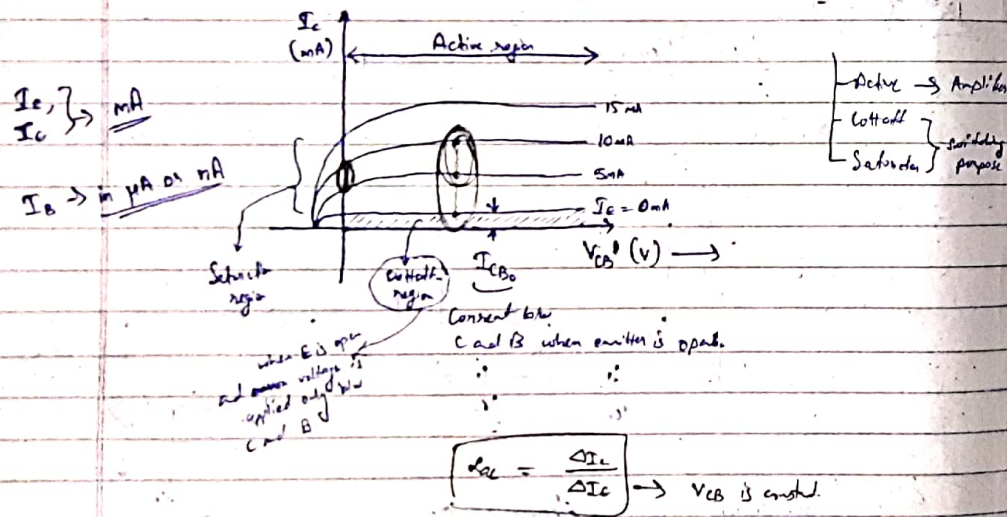 I_C
(mA)
Active region
I_E,
I_C } → mA
I_B → in μA or nA
15 mA
10 mA
5 mA
I_E = 0 mA
V_CB (V) →
I_CBO
Active → Amplifier
Cuttoff
Saturation } switching purpose
Saturation
region
Cuttoff
region
Current b/w
C and B when emitter is open.
when E is open
and voltage is
applied only b/w
C and B
α_ac = ΔI_C / ΔI_E → V_CB is constant.